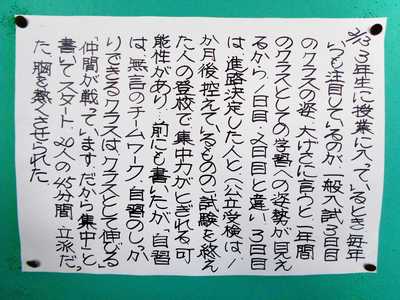 2/13 3年生に授業に入っているとき毎年
いつも注目しているのが、一般入試3日目
のクラスの姿、大げさに言うと、1年間
のクラスとしての学習への姿勢が見え
るから、1日目・2日目と違い3日目
は、進路決定した人と、(公立受検は1
か月後控えているものの)試験を終え
た人の登校で集中力がとぎれる可
能性があり…前にも書いたが「自習
は、無言のチームワーク」自習のしっか
りできるクラスはクラスとして伸びる
「仲間が戦っています。だから集中」と
書いてスタート、20人への45分間立派だ。
た、胸を熱くさせられた。